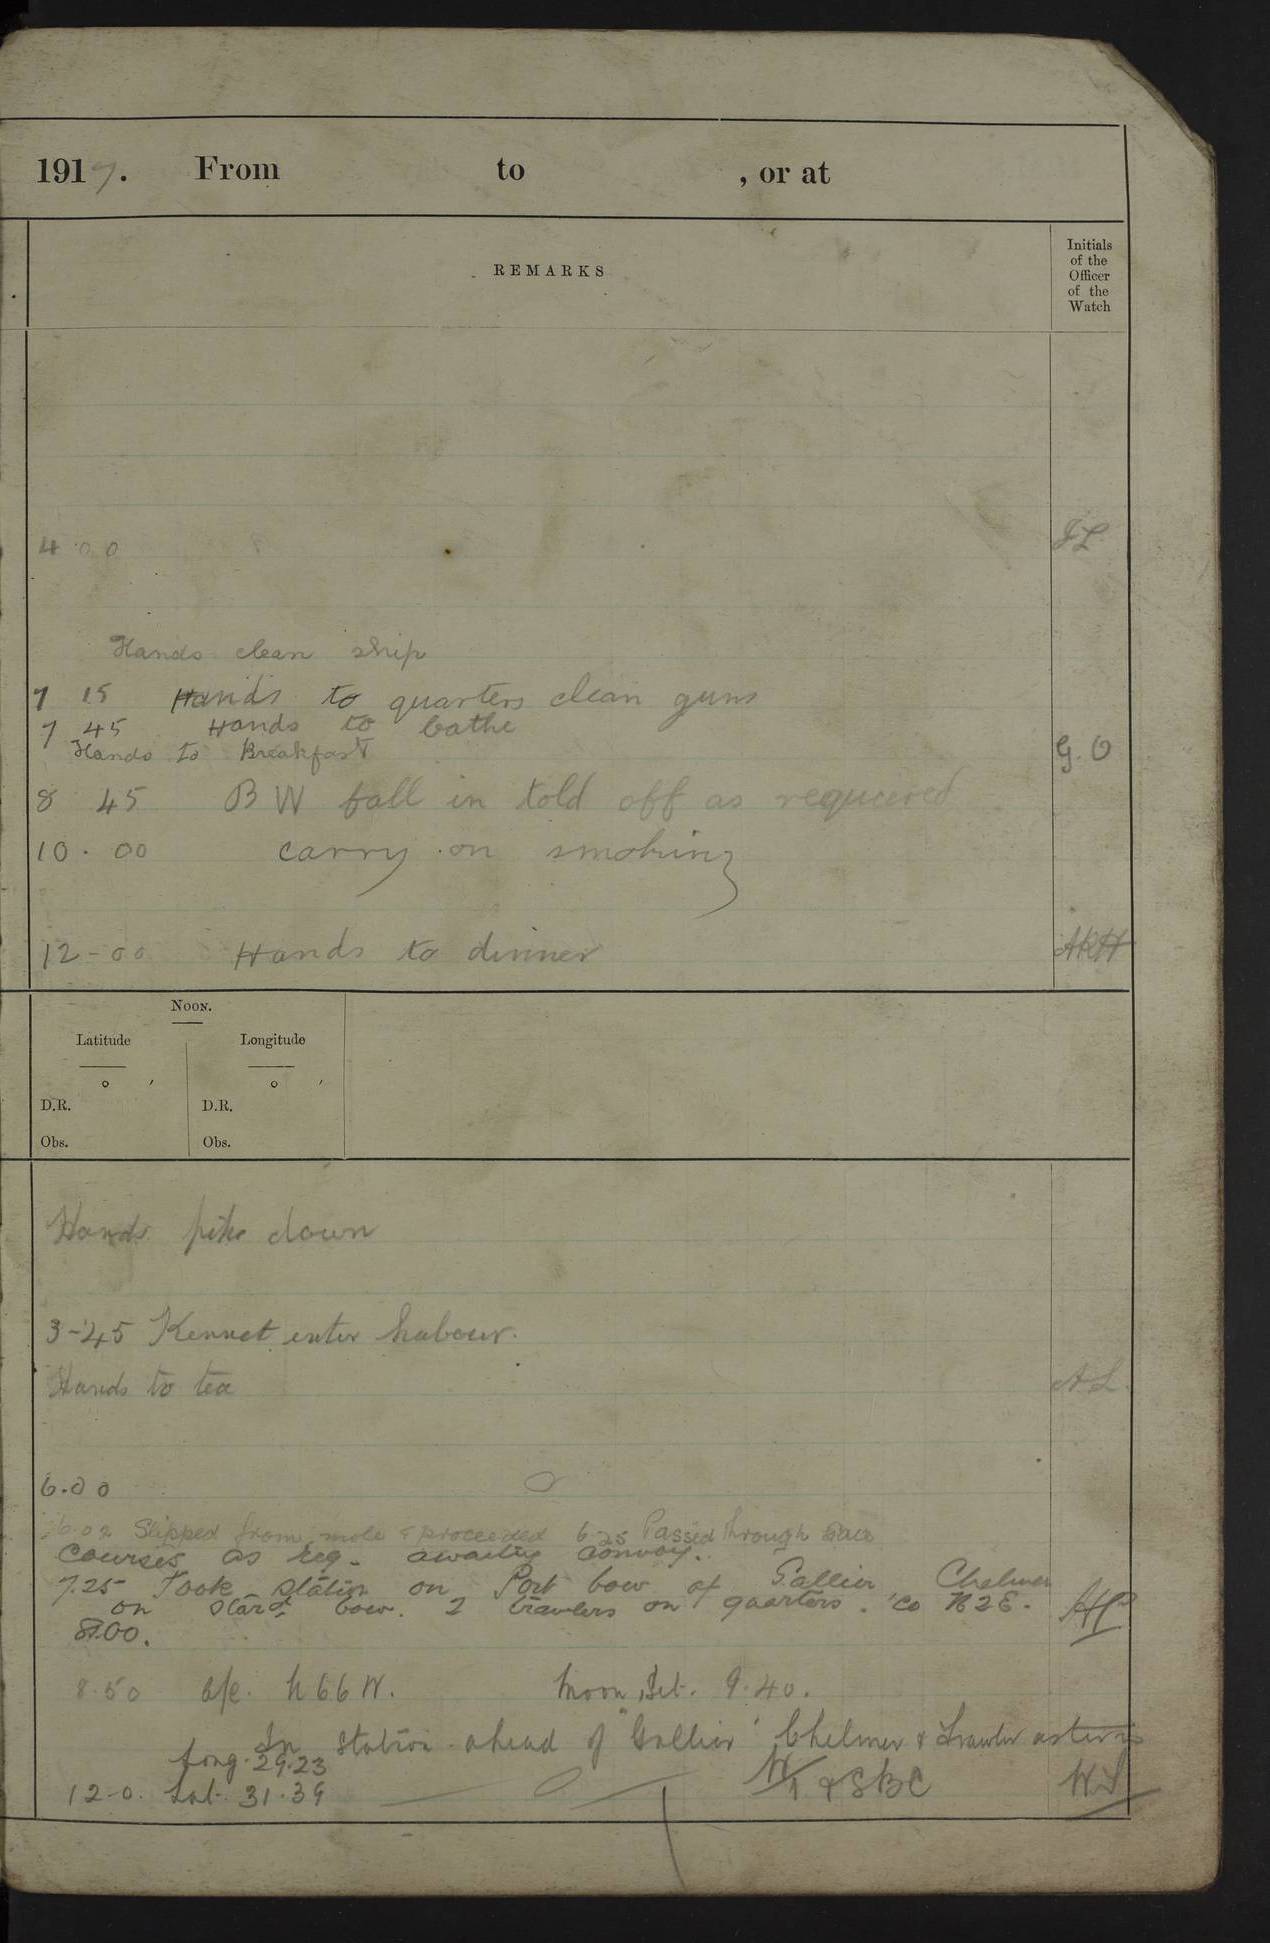 1917. From to , or at
REMARKS
Initials
of the
Officer
of the
Watch
4.00 JL
Hands clean ship
7 15 Hands to quarters clean guns
7 45 Hands to bathe
Hands to Breakfast G.O
8 45 BW fall in told off as requiered
10.00 carry on smoking
12-00 Hands to dinner AKH
Noon.
Latitude Longitude
° ′ ° ′
D.R. D.R.
Obs. Obs.
Hands pipe down
3-45 Kennet enter habour.
Hands to tea AL
6.00
6.02 Slipped from mole & proceeded 6.25 Passed through
courses as req. awaiting convoy.
7.25 Took station on Port bow of Gallier, Chelmer
on starbd bow. 2 trawlers on quarters. Co N2E.
8.00.
8.50 a/c. N66W. Moon Set. 9.40.
In station ahead of "Gallier" Chelmer & Trawler astern
Long. 29.23
12-0. Lat. 31.39 W/T & SBC WS